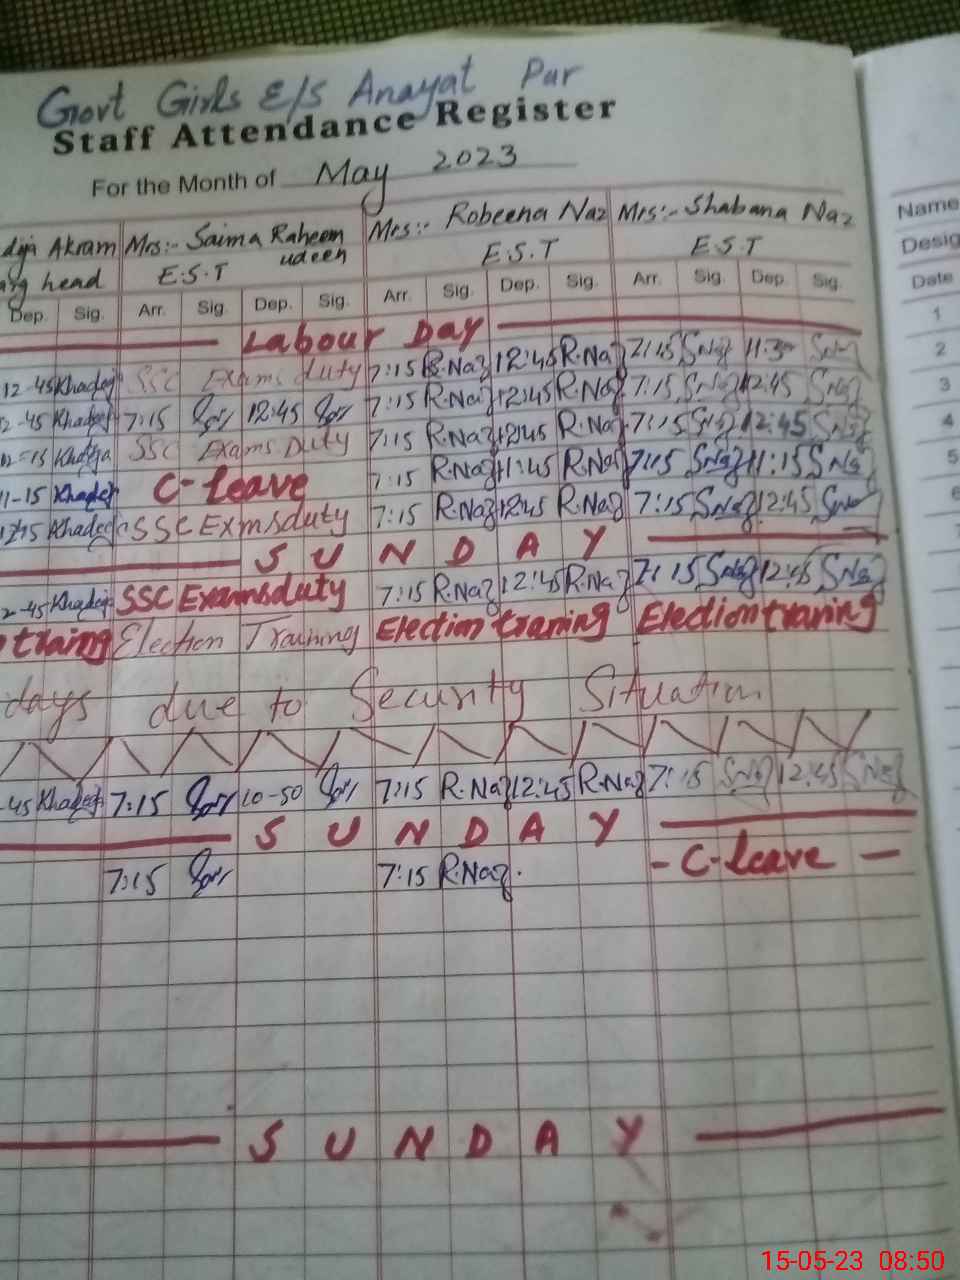 Govt Girls E/S Anayat Pur
Staff Attendance Register
For the Month of May 2023
Akram Mrs:- Saima Raheem udeen Mrs:- Robeena Naz Mrs:- Shabana Naz
head E.S.T E.S.T E.S.T
Dep. Sig. Arr. Sig. Dep. Sig. Arr. Sig. Dep. Sig. Arr. Sig. Dep. Sig.
Labour Day
12-45 Khadej SSC Exams duty 7:15 R.Naz 12:45 R.Naz 7:45 SNaz 11:30 SNaz
2-45 Khadej 7:15 12:45 7:15 R.Naz 12:45 R.Naz 7:15 SNaz 12:45 SNaz
Khadeja SSC Exams Duty 7:15 R.Naz 12:45 R.Naz 7:15 SNaz 12:45 SNaz
11-15 Khadej C-leave 7:15 R.Naz 11:45 R.Naz 7:15 SNaz 11:15 SNaz
Khadej SSC Exmsduty 7:15 R.Naz 12:45 R.Naz 7:15 SNaz 12:45 SNaz
SUNDAY
2-45 Khadeja SSC Examsduty 7:15 R.Naz 12:45 R.Naz 7:15 SNaz 12:45 SNaz
traing Election Training Election traning Election traning
days due to Security Situation
-45 Khadej 7:15 10-50 7:15 R.Naz 12:45 R.Naz 7:15 SNaz 12:45 SNaz
SUNDAY
7:15 7:15 R.Naz. - C-leave -
SUNDAY
Name
Desig
Date
1
2
3
4
5
6
15-05-23 08:50